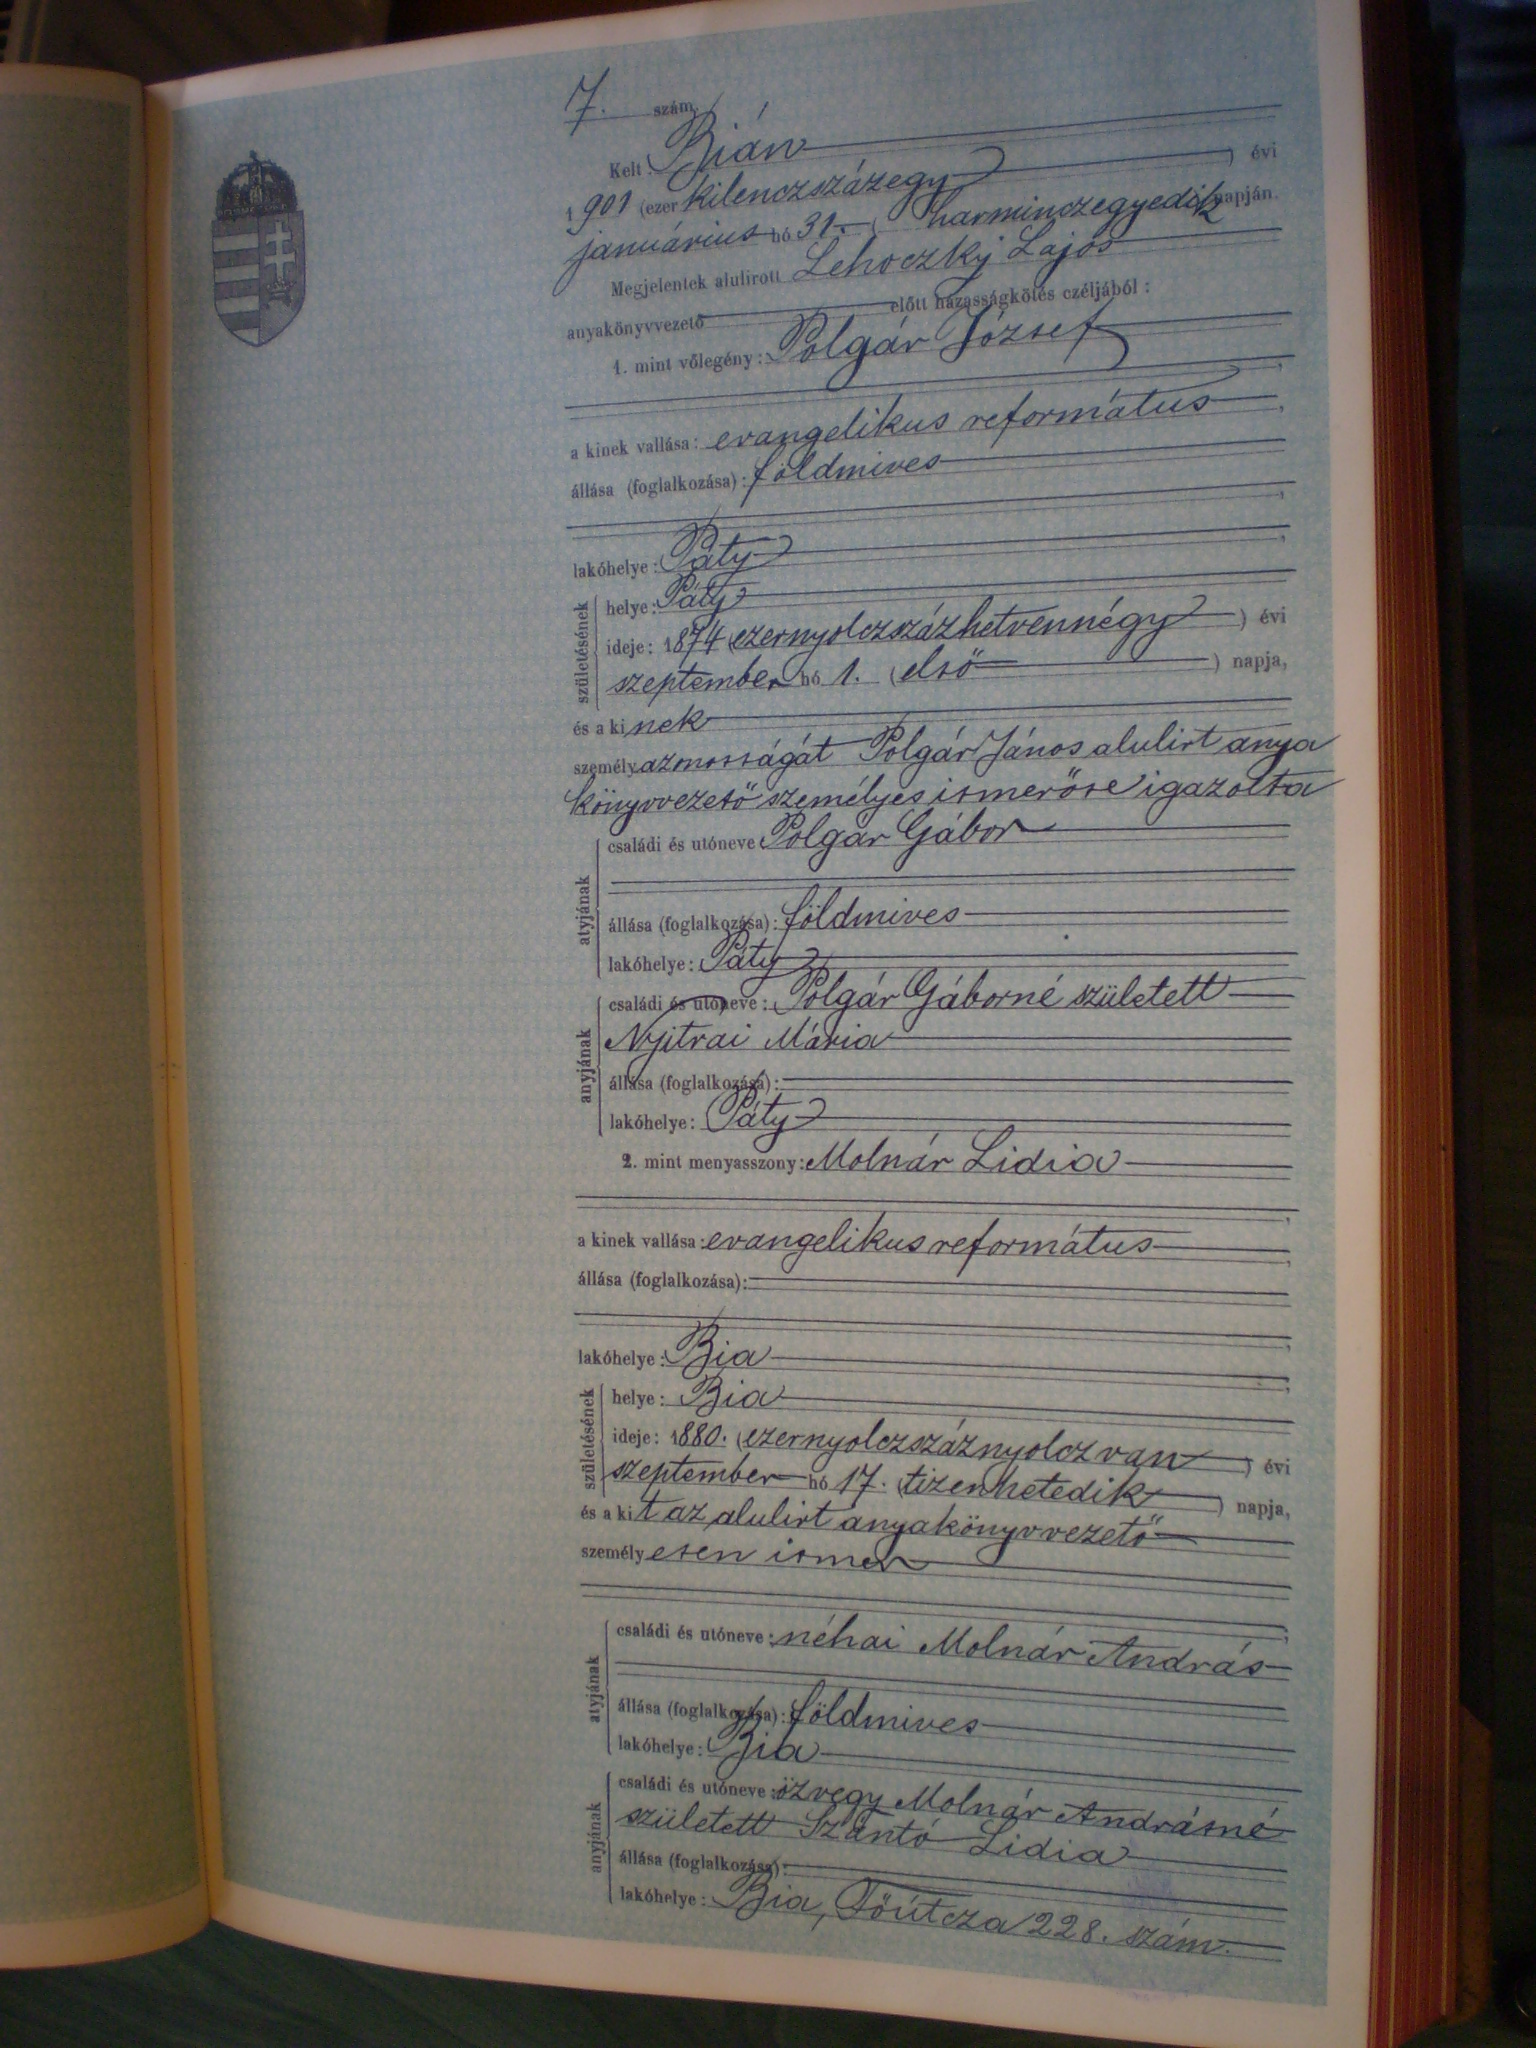 7. szám.
Kelt: Bián
1901 (ezer kilenczszázegy) évi
januárius hó 31. (harminczegyedik napján.
Megjelentek alulirott Lehoczky Lajos
anyakönyvvezető előtt házasságkötés czéljából:
1. mint vőlegény: Polgár József
a kinek vallása: evangelikus református
állása (foglalkozása): földmives
lakóhelye: Páty
születésének
helye: Páty
ideje: 1874 (ezernyolczszázhetvennégy) évi
szeptember hó 1. (első) napja,
és a ki nek
személy azonosságát Polgár János alulirt anya
könyvvezető személyes ismerőse igazolta
atyjának
családi és utóneve: Polgár Gábor
állása (foglalkozása): földmives
lakóhelye: Páty
anyjának
családi és utóneve: Polgár Gáborné született
Nyitrai Mária
állása (foglalkozása):
lakóhelye: Páty
2. mint menyasszony: Molnár Lidia
a kinek vallása: evangelikus református
állása (foglalkozása):
lakóhelye: Bia
születésének
helye: Bia
ideje: 1880. (ezernyolczszáznyolczvan) évi
szeptember hó 17. (tizenhetedik) napja,
és a ki t az alulirt anyakönyvvezető
személy esen ismer
atyjának
családi és utóneve: néhai Molnár András
állása (foglalkozása): földmives
lakóhelye: Bia
anyjának
családi és utóneve: özvegy Molnár Andrásné
született Szántó Lidia
állása (foglalkozása):
lakóhelye: Bia, Főútcza 228. szám.